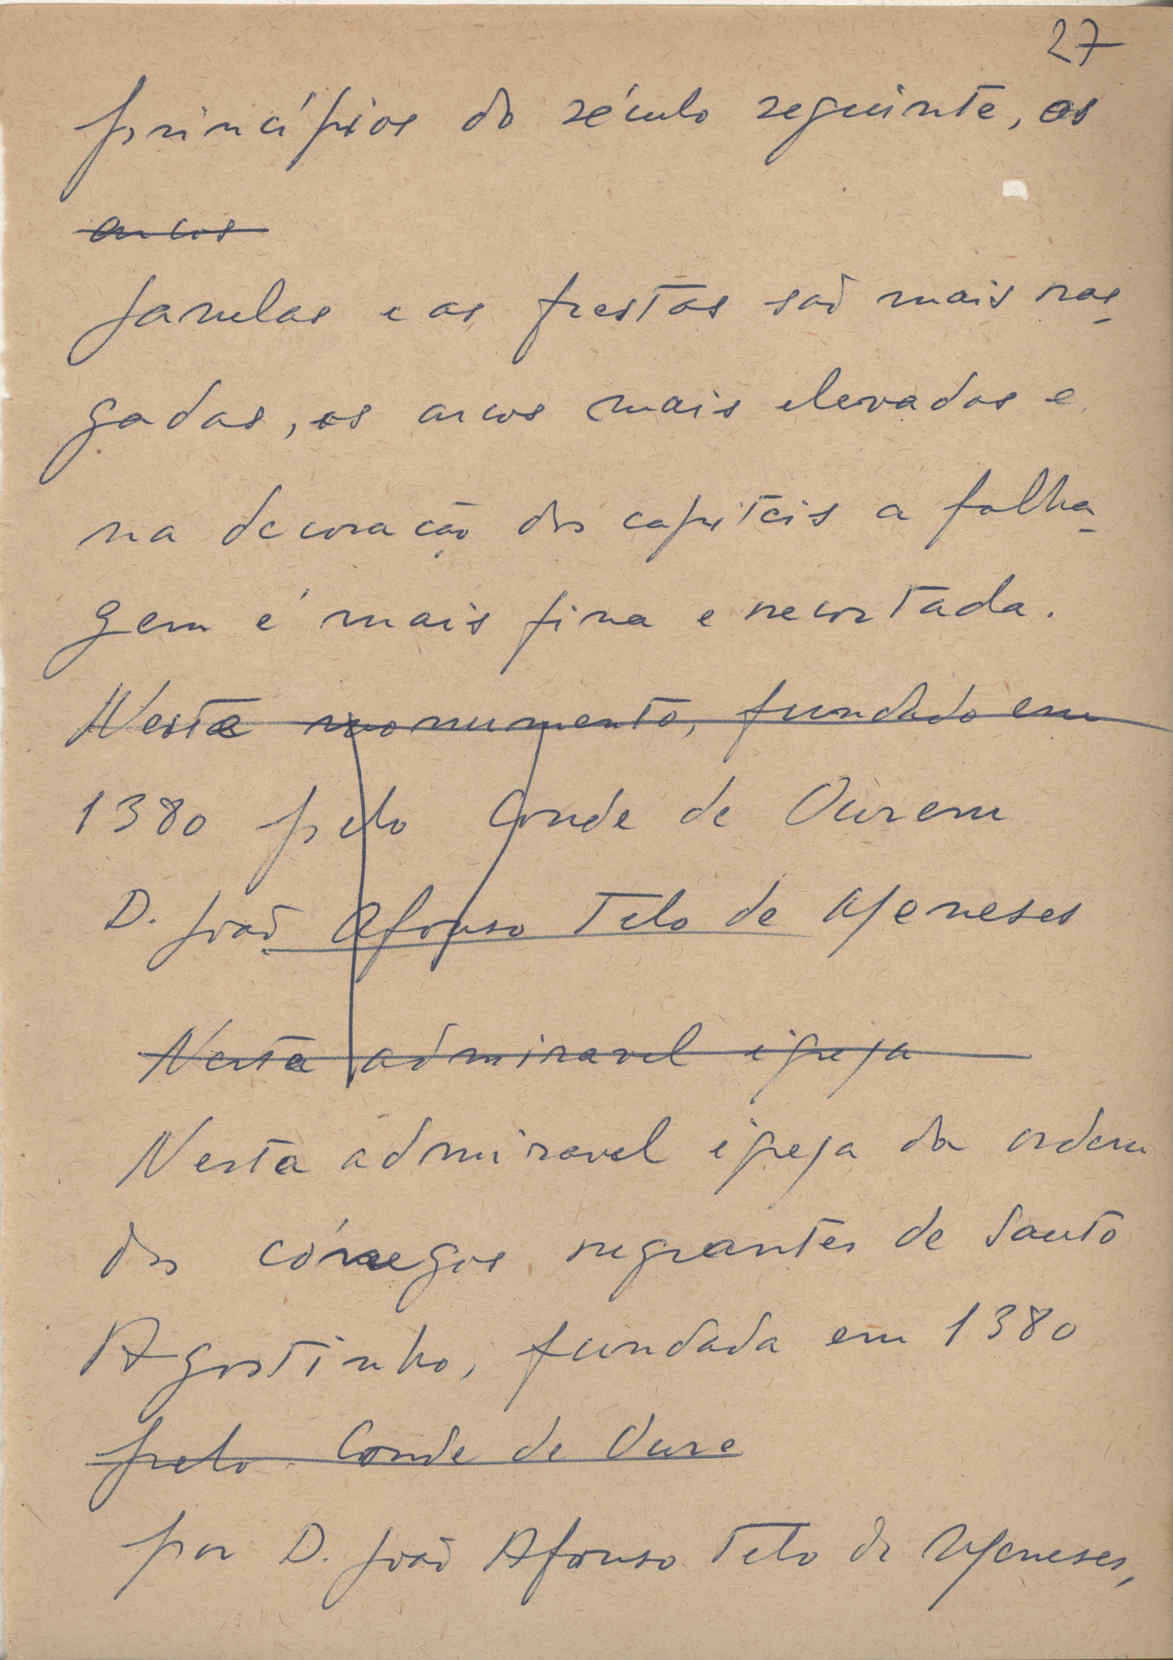 27
princípios do século seguinte, as
arcos
janelas e as frestas são mais ras-
gadas, os arcos mais elevados e
na decoração dos capiteis a folha-
gem é mais fina e recortada.
Neste monumento, fundado em
1380 pelo Conde de Ourem
D. João Afonso Telo de Meneses
Nesta admiravel igreja
Nesta admiravel igreja da ordem
dos cónegos regrantes de Santo
Agostinho, fundada em 1380
pelo Conde de Oure
por D. João Afonso Telo de Meneses,